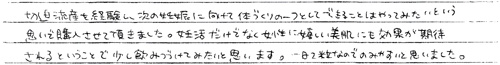 切迫流産を経験し、次の妊娠に向けて体づくりの一つとしてできることはやってみたいという
思いで購入させて頂きました。妊活だけでなく女性に嬉しい美肌にも効果が期待
されるということで少し飲みつづけてみたいと思います。一日で2粒なのでのみやすいと思いました。